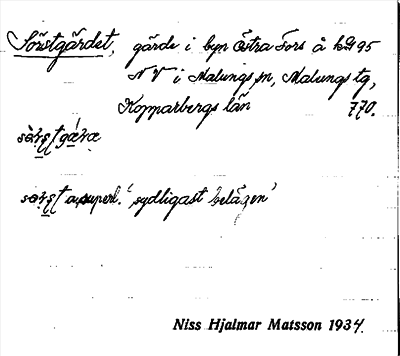 Sörstgärdet, gärde i byn Östra Fors å kbl 95
N V i Malungs sn, Malungs tg,
Kopparbergs län 770.
sörst a. superl. 'sydligast belägen'
Niss Hjalmar Matsson 1934.